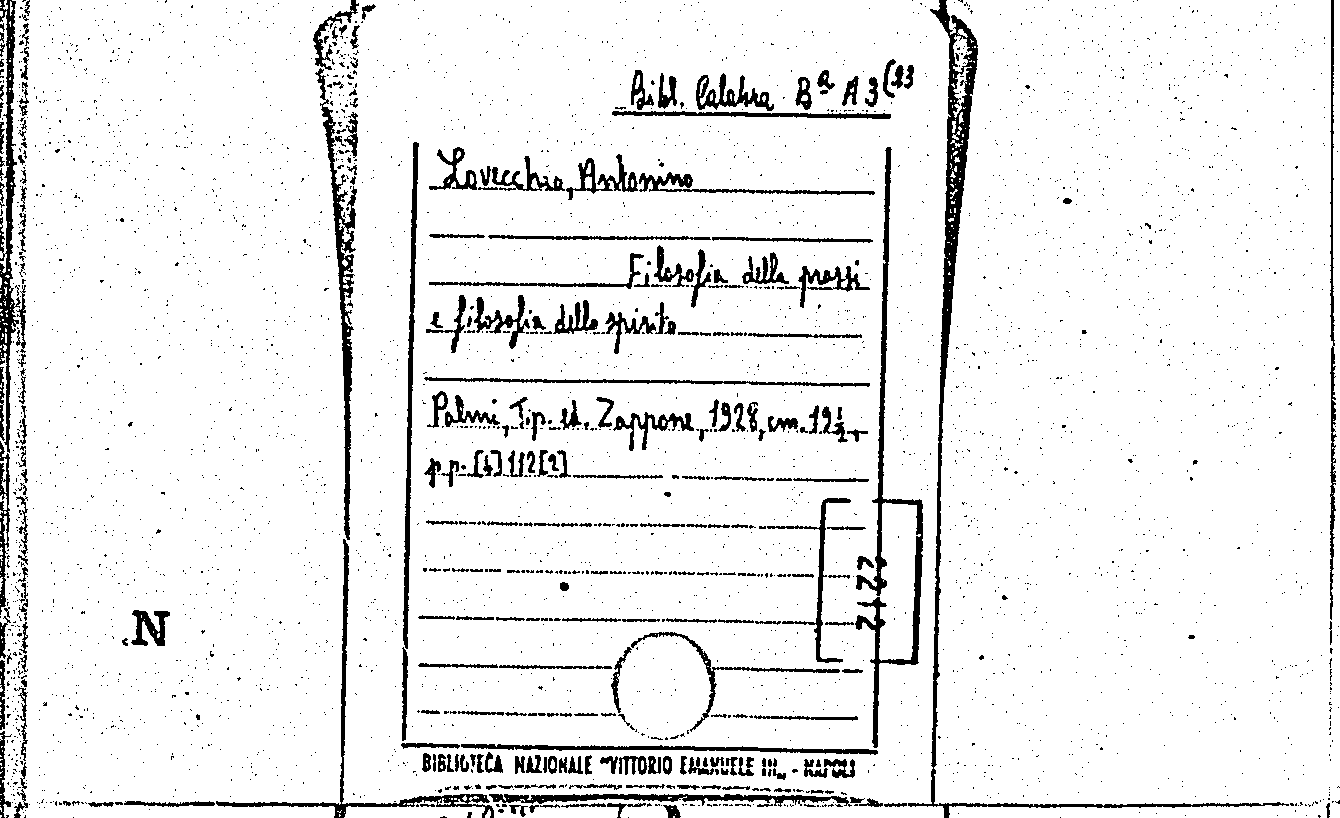 Bibl. Calabra Bª A 3(23
Lovecchio, Antonino
Filosofia della prassi
e filosofia dello spirito
Palmi, Tip. ed. Zappone, 1928, cm. 19½,
p.p. [4] 112 [2]
22212
N
BIBLIOTECA NAZIONALE "VITTORIO EMANUELE III„ - NAPOLI